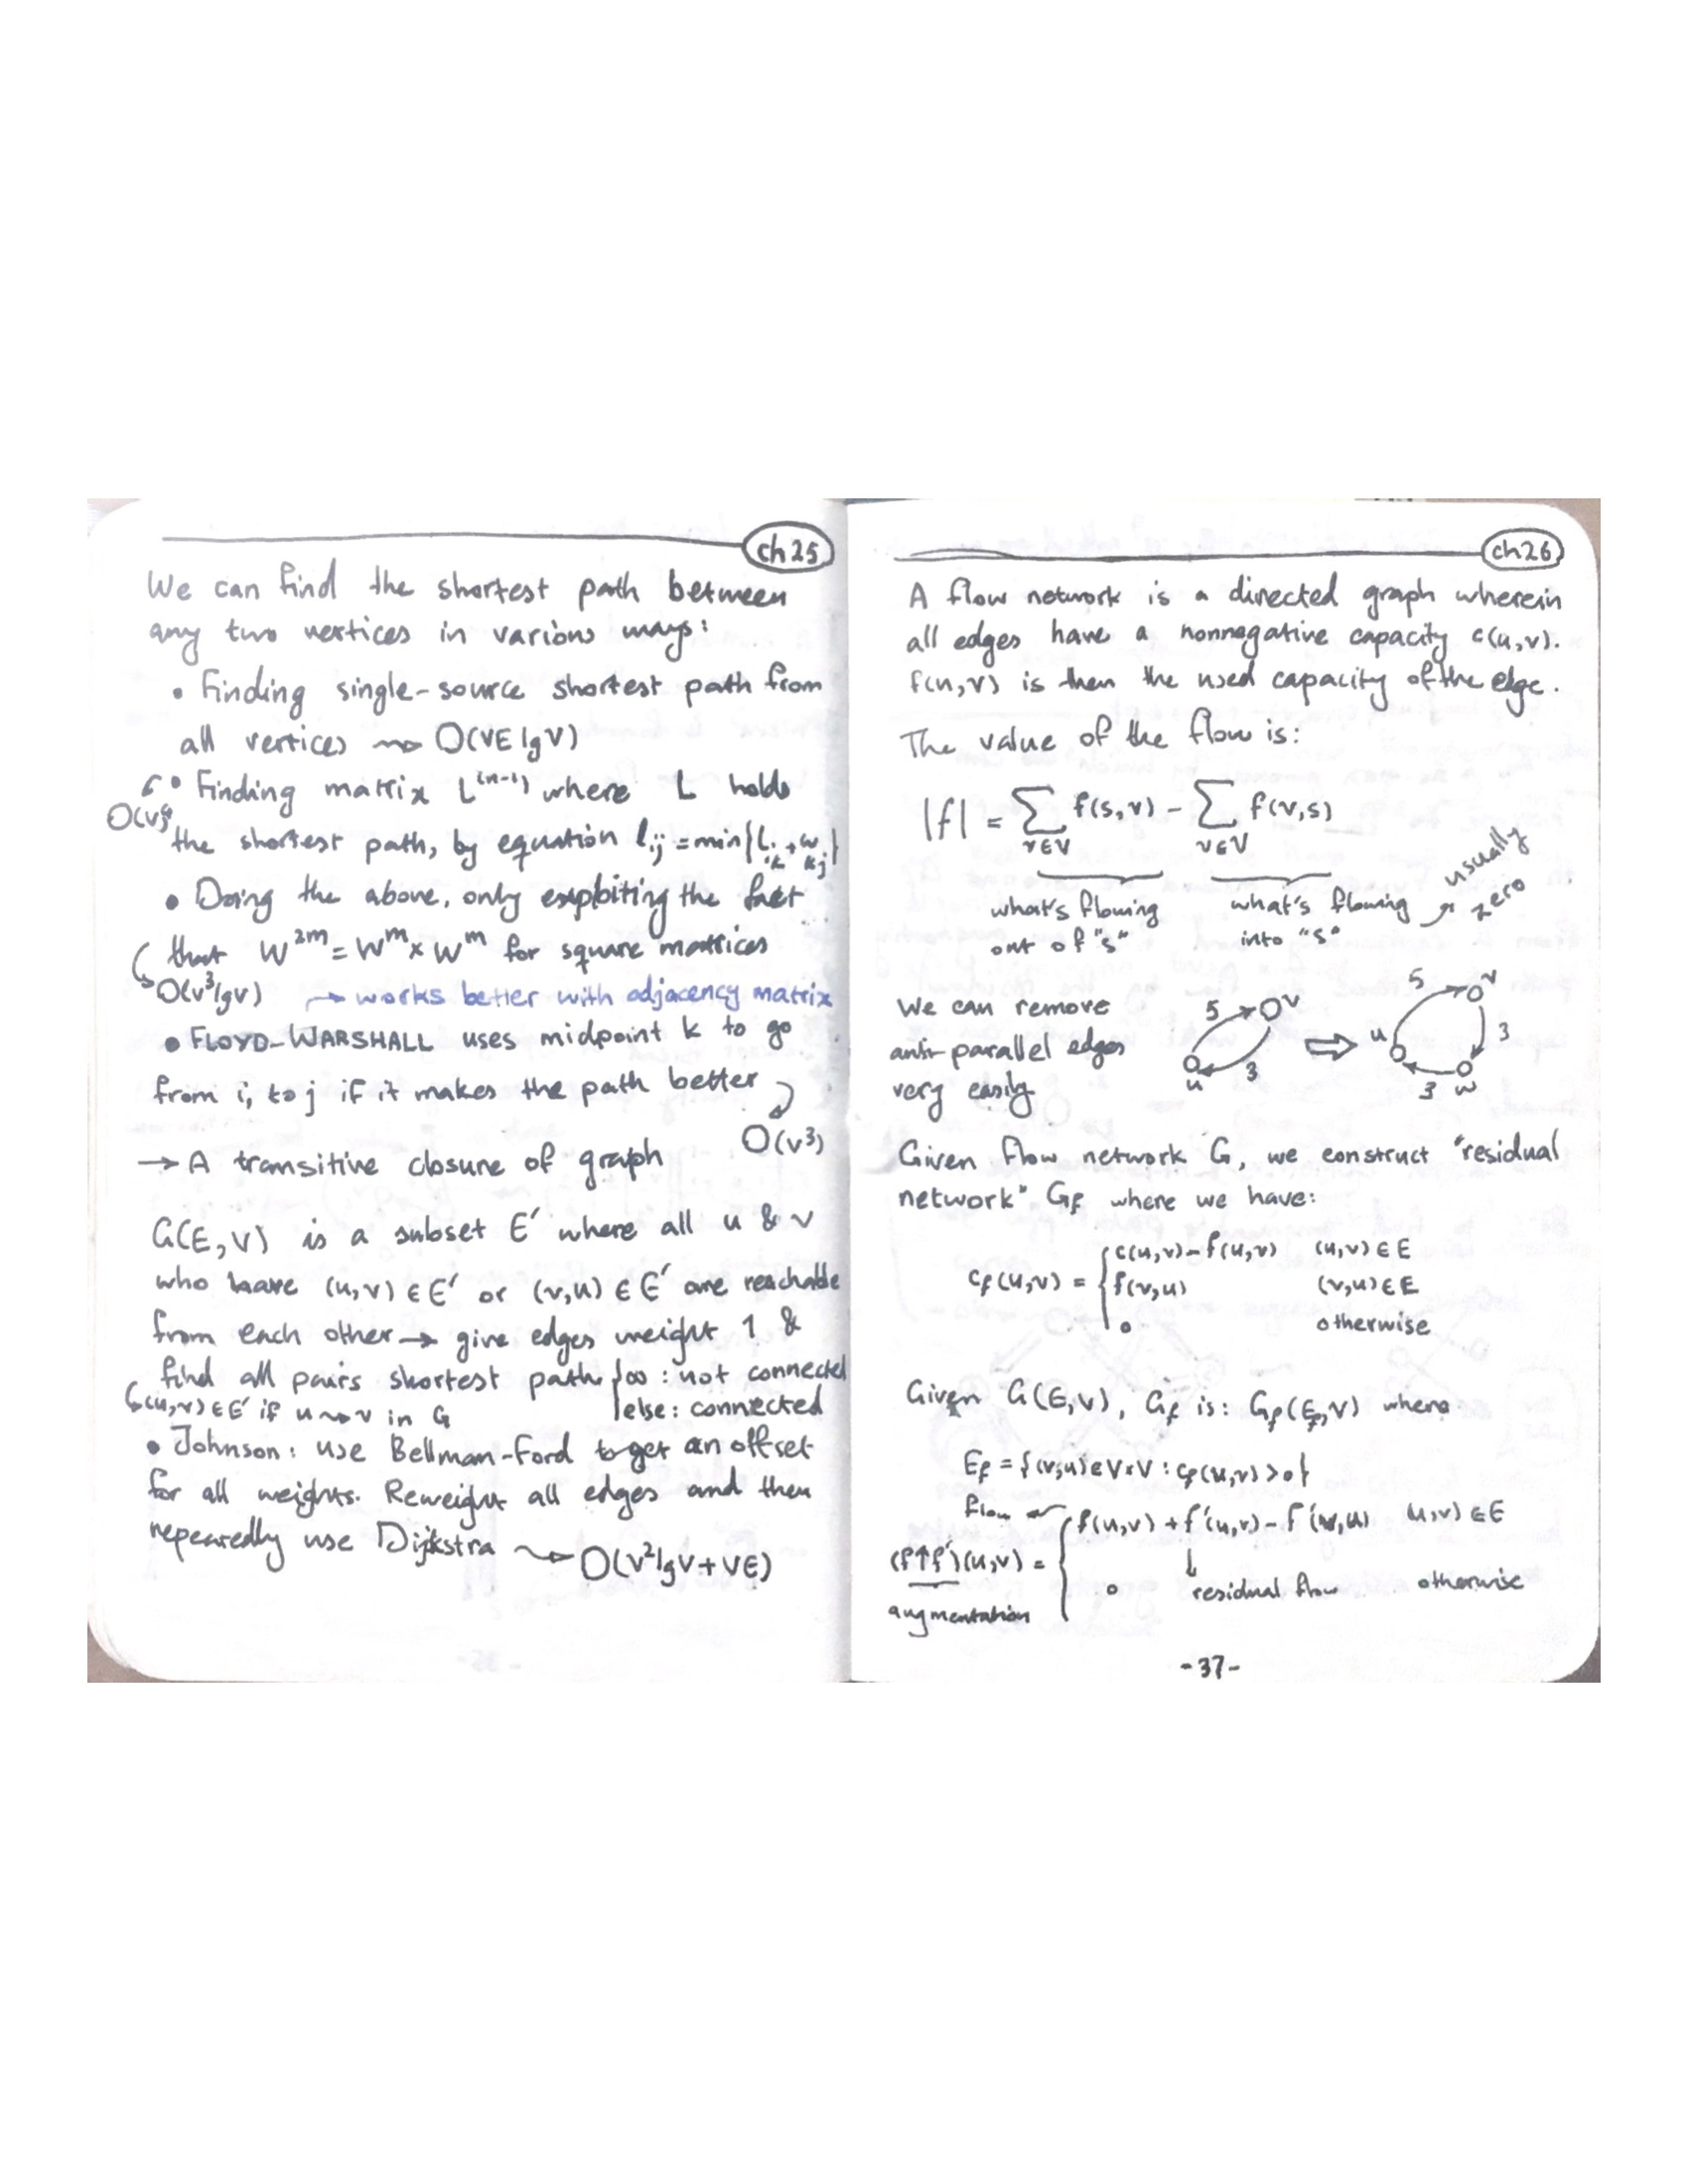 ch25
We can find the shortest path between
any two vertices in various ways:
• Finding single-source shortest path from
all vertices ⇝ O(VE lgV)
• Finding matrix L⁽ⁿ⁻¹⁾ where L holds
O(V⁴)
the shortest path, by equation lᵢⱼ = min{Lᵢₖ + wₖⱼ}
• Doing the above, only exploiting the fact
that W²ᵐ = Wᵐ × Wᵐ for square matrices
O(V³lgV) → works better with adjacency matrix
• FLOYD-WARSHALL uses midpoint k to go
from i, to j if it makes the path better
O(V³)
→ A transitive closure of graph
G(E,V) is a subset E′ where all u & v
who have (u,v) ∈ E′ or (v,u) ∈ E′ are reachable
from each other → give edges weight 1 &
find all pairs shortest path { ∞ : not connected
(u,v) ∈ E′ if u ⇝ v in G else : connected
• Johnson: use Bellman-Ford to get an offset
for all weights. Reweight all edges and then
repeatedly use Dijkstra ⇝ O(V²lgV + VE)
ch26
A flow network is a directed graph wherein
all edges have a nonnegative capacity c(u,v).
f(u,v) is then the used capacity of the edge.
The value of the flow is:
|f| = ∑ f(s,v) - ∑ f(v,s)
v∈V v∈V
what's flowing what's flowing → usually zero
out of "s" into "s"
We can remove
anti-parallel edges
very easily
5 v u 3 ⇒ 5 v u 3 3 w
Given flow network G, we construct "residual
network" Gf where we have:
cf(u,v) = { c(u,v) - f(u,v) (u,v) ∈ E
f(v,u) (v,u) ∈ E
0 otherwise
Given G(E,V), Gf is: Gf(Ef,V) where
Ef = {(v,u) ∈ V×V : cf(u,v) > 0}
flow
(f↑f′)(u,v) = { f(u,v) + f′(u,v) - f′(v,u) (u,v) ∈ E
0 residual flow otherwise
augmentation
-37-